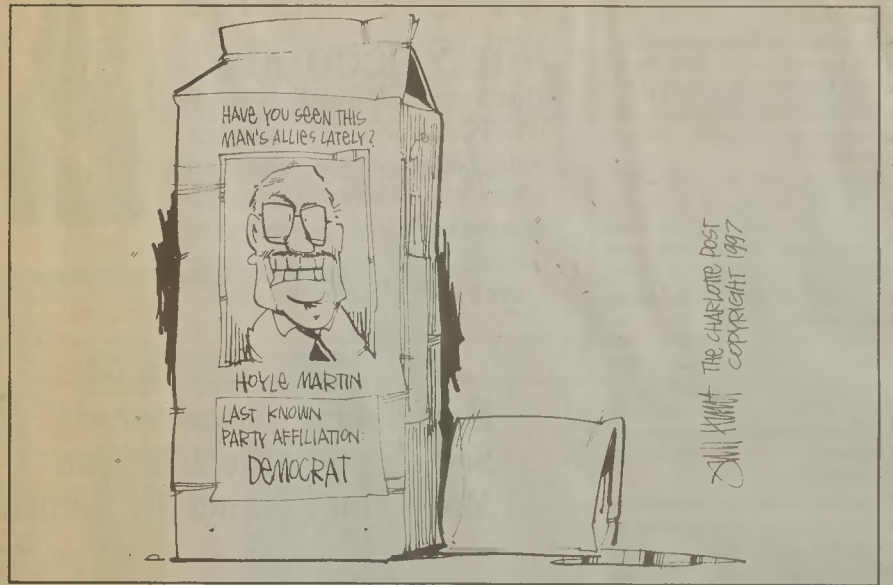 HAVE YOU SEEN THIS
MAN'S ALLIES LATELY?
HOYLE MARTIN
LAST KNOWN
PARTY AFFILIATION:
DEMOCRAT
THE CHARLOTTE POST
COPYRIGHT 1997